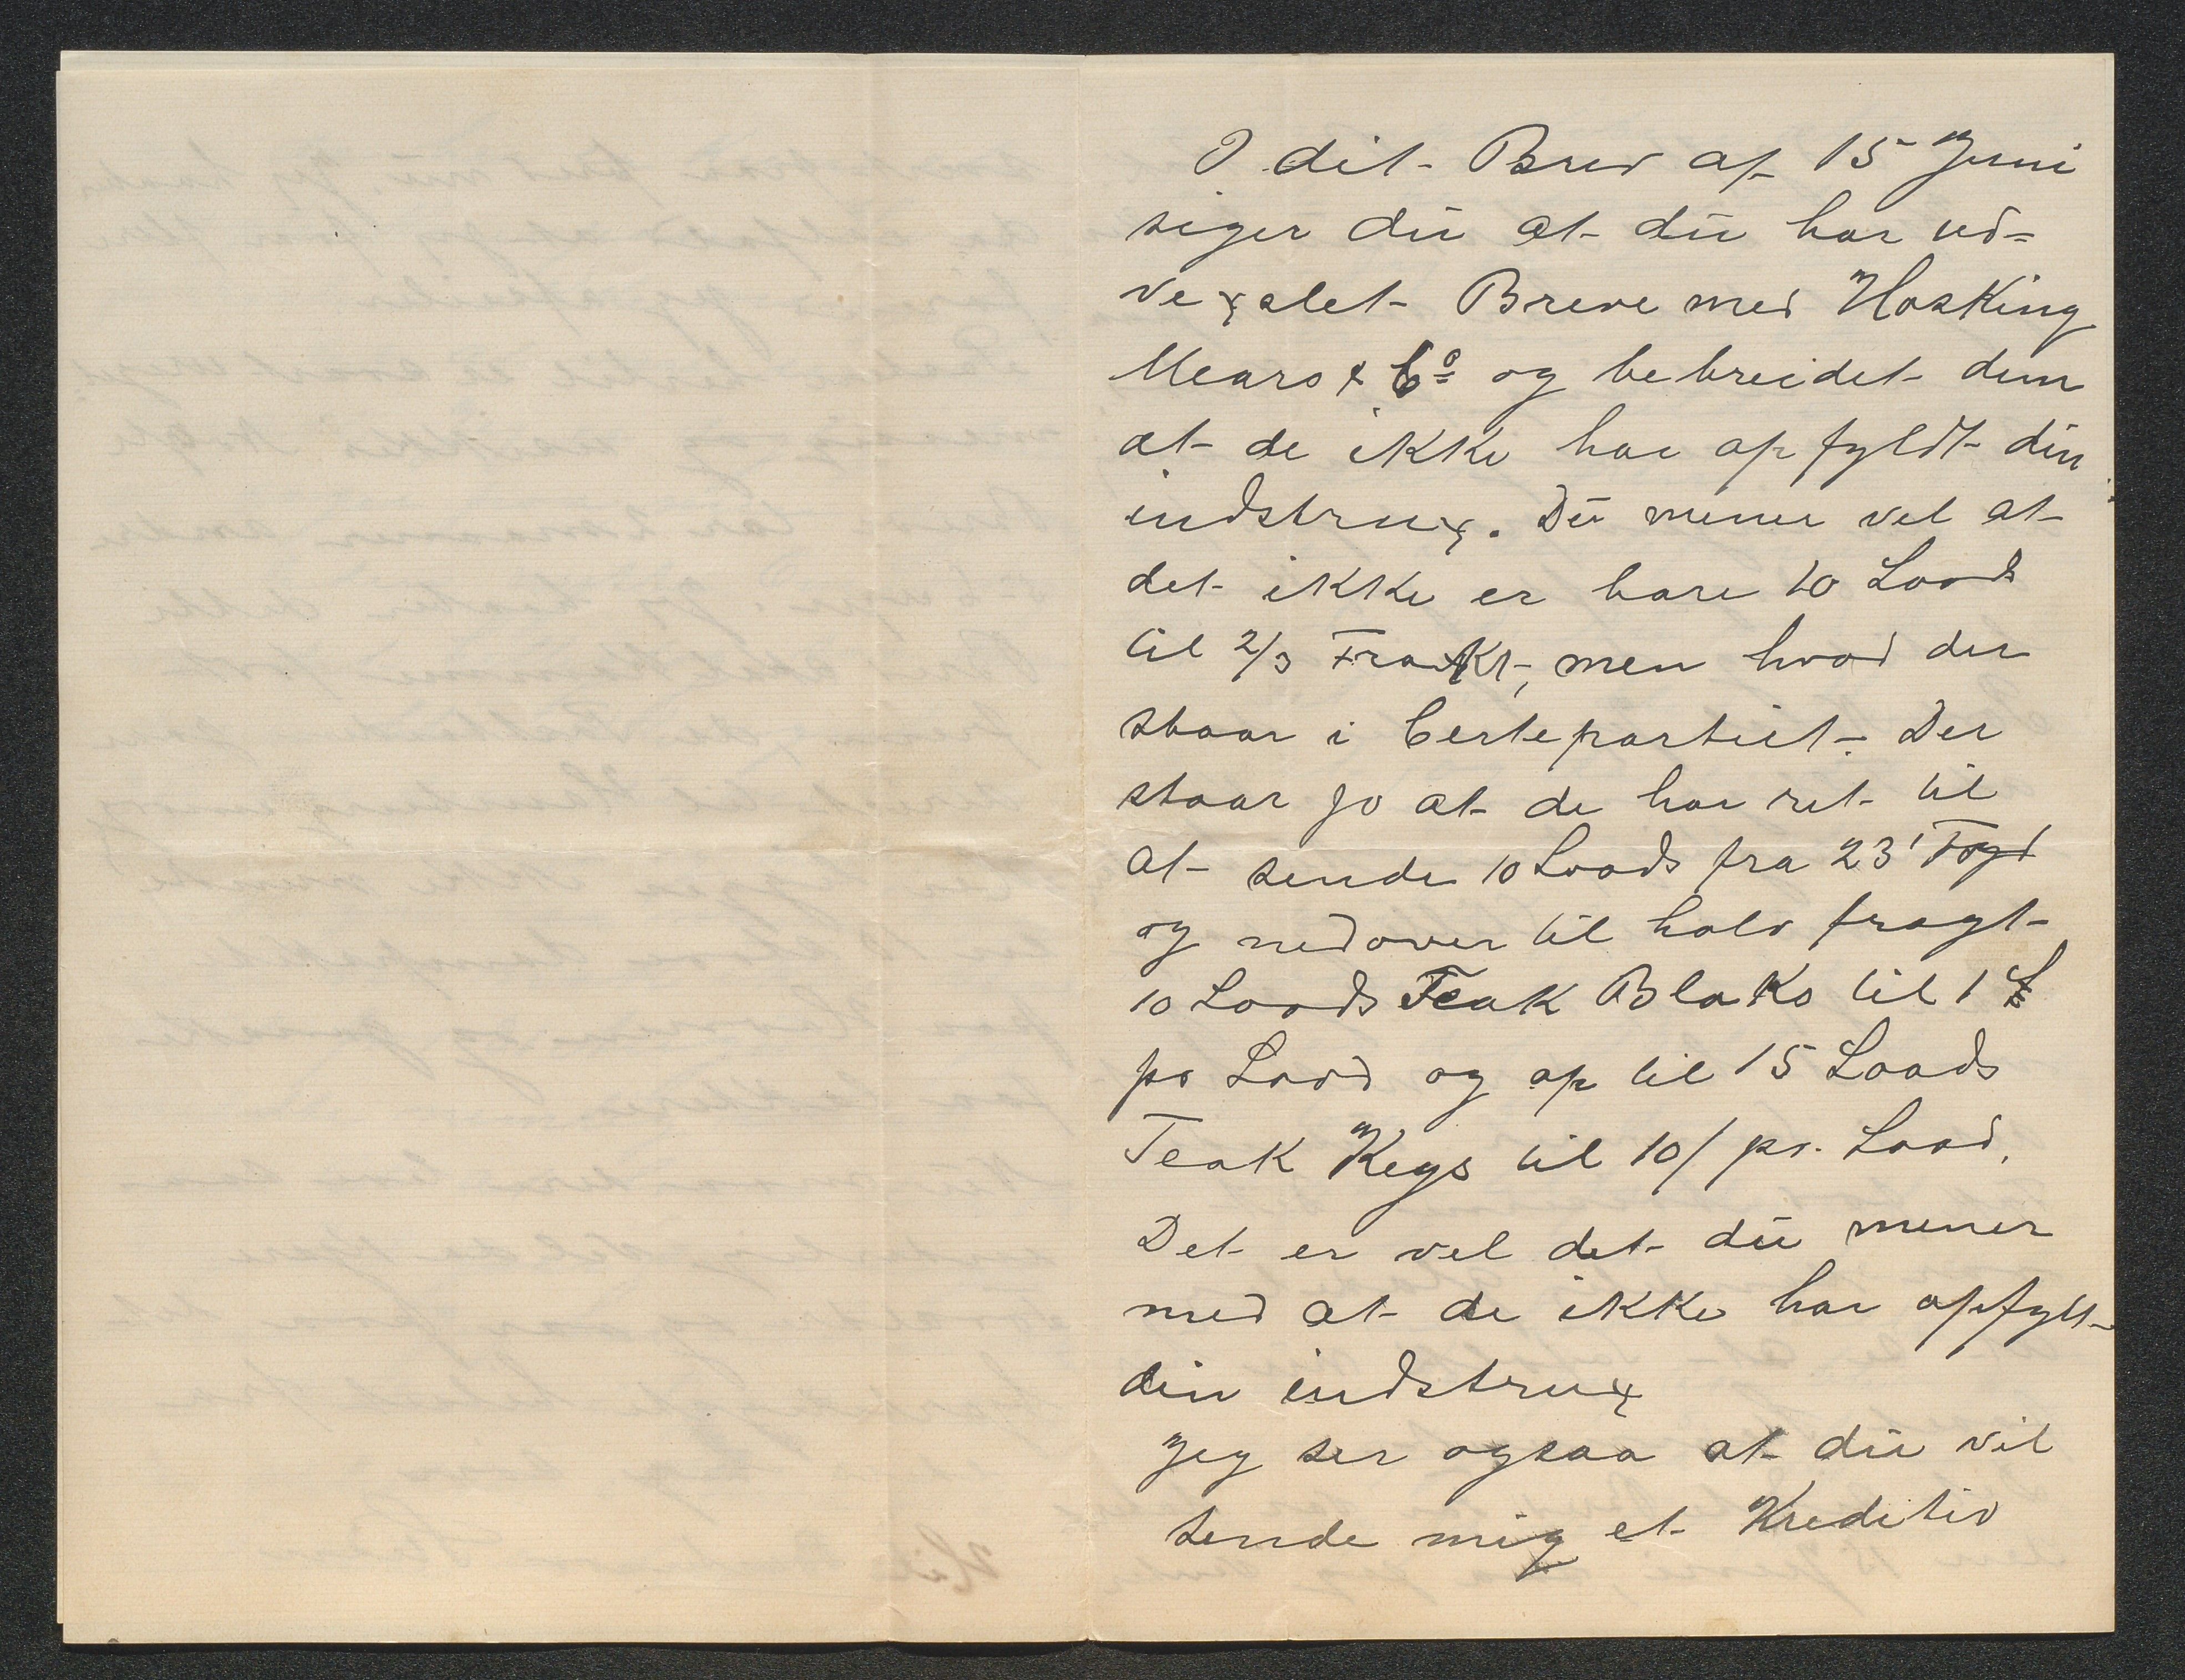 I dit Brev af 15 Juni
siger du at du har ud=
vexslet Breve med Hosking
Mears & Co og bebreidet dem
at de ikke har opfyldt din
indstrux. Du mener vel at
det ikke er bare 10 Loads
til 2/3 Frakt, men hvad der
staar i Certepartiet. Der
staar jo at de har ret til
at sende 10 Loads fra 23'
og nedover til halv fragt
10 Loads Teak Bloks til 1 £
pr Load og op til 15 Loads
Teak Keys til 10/ pr. Load.
Det er vel det du mener
med at de ikke har opfylt
din indstrux
Jeg ser ogsaa at du vil
sende mig et Kreditiv